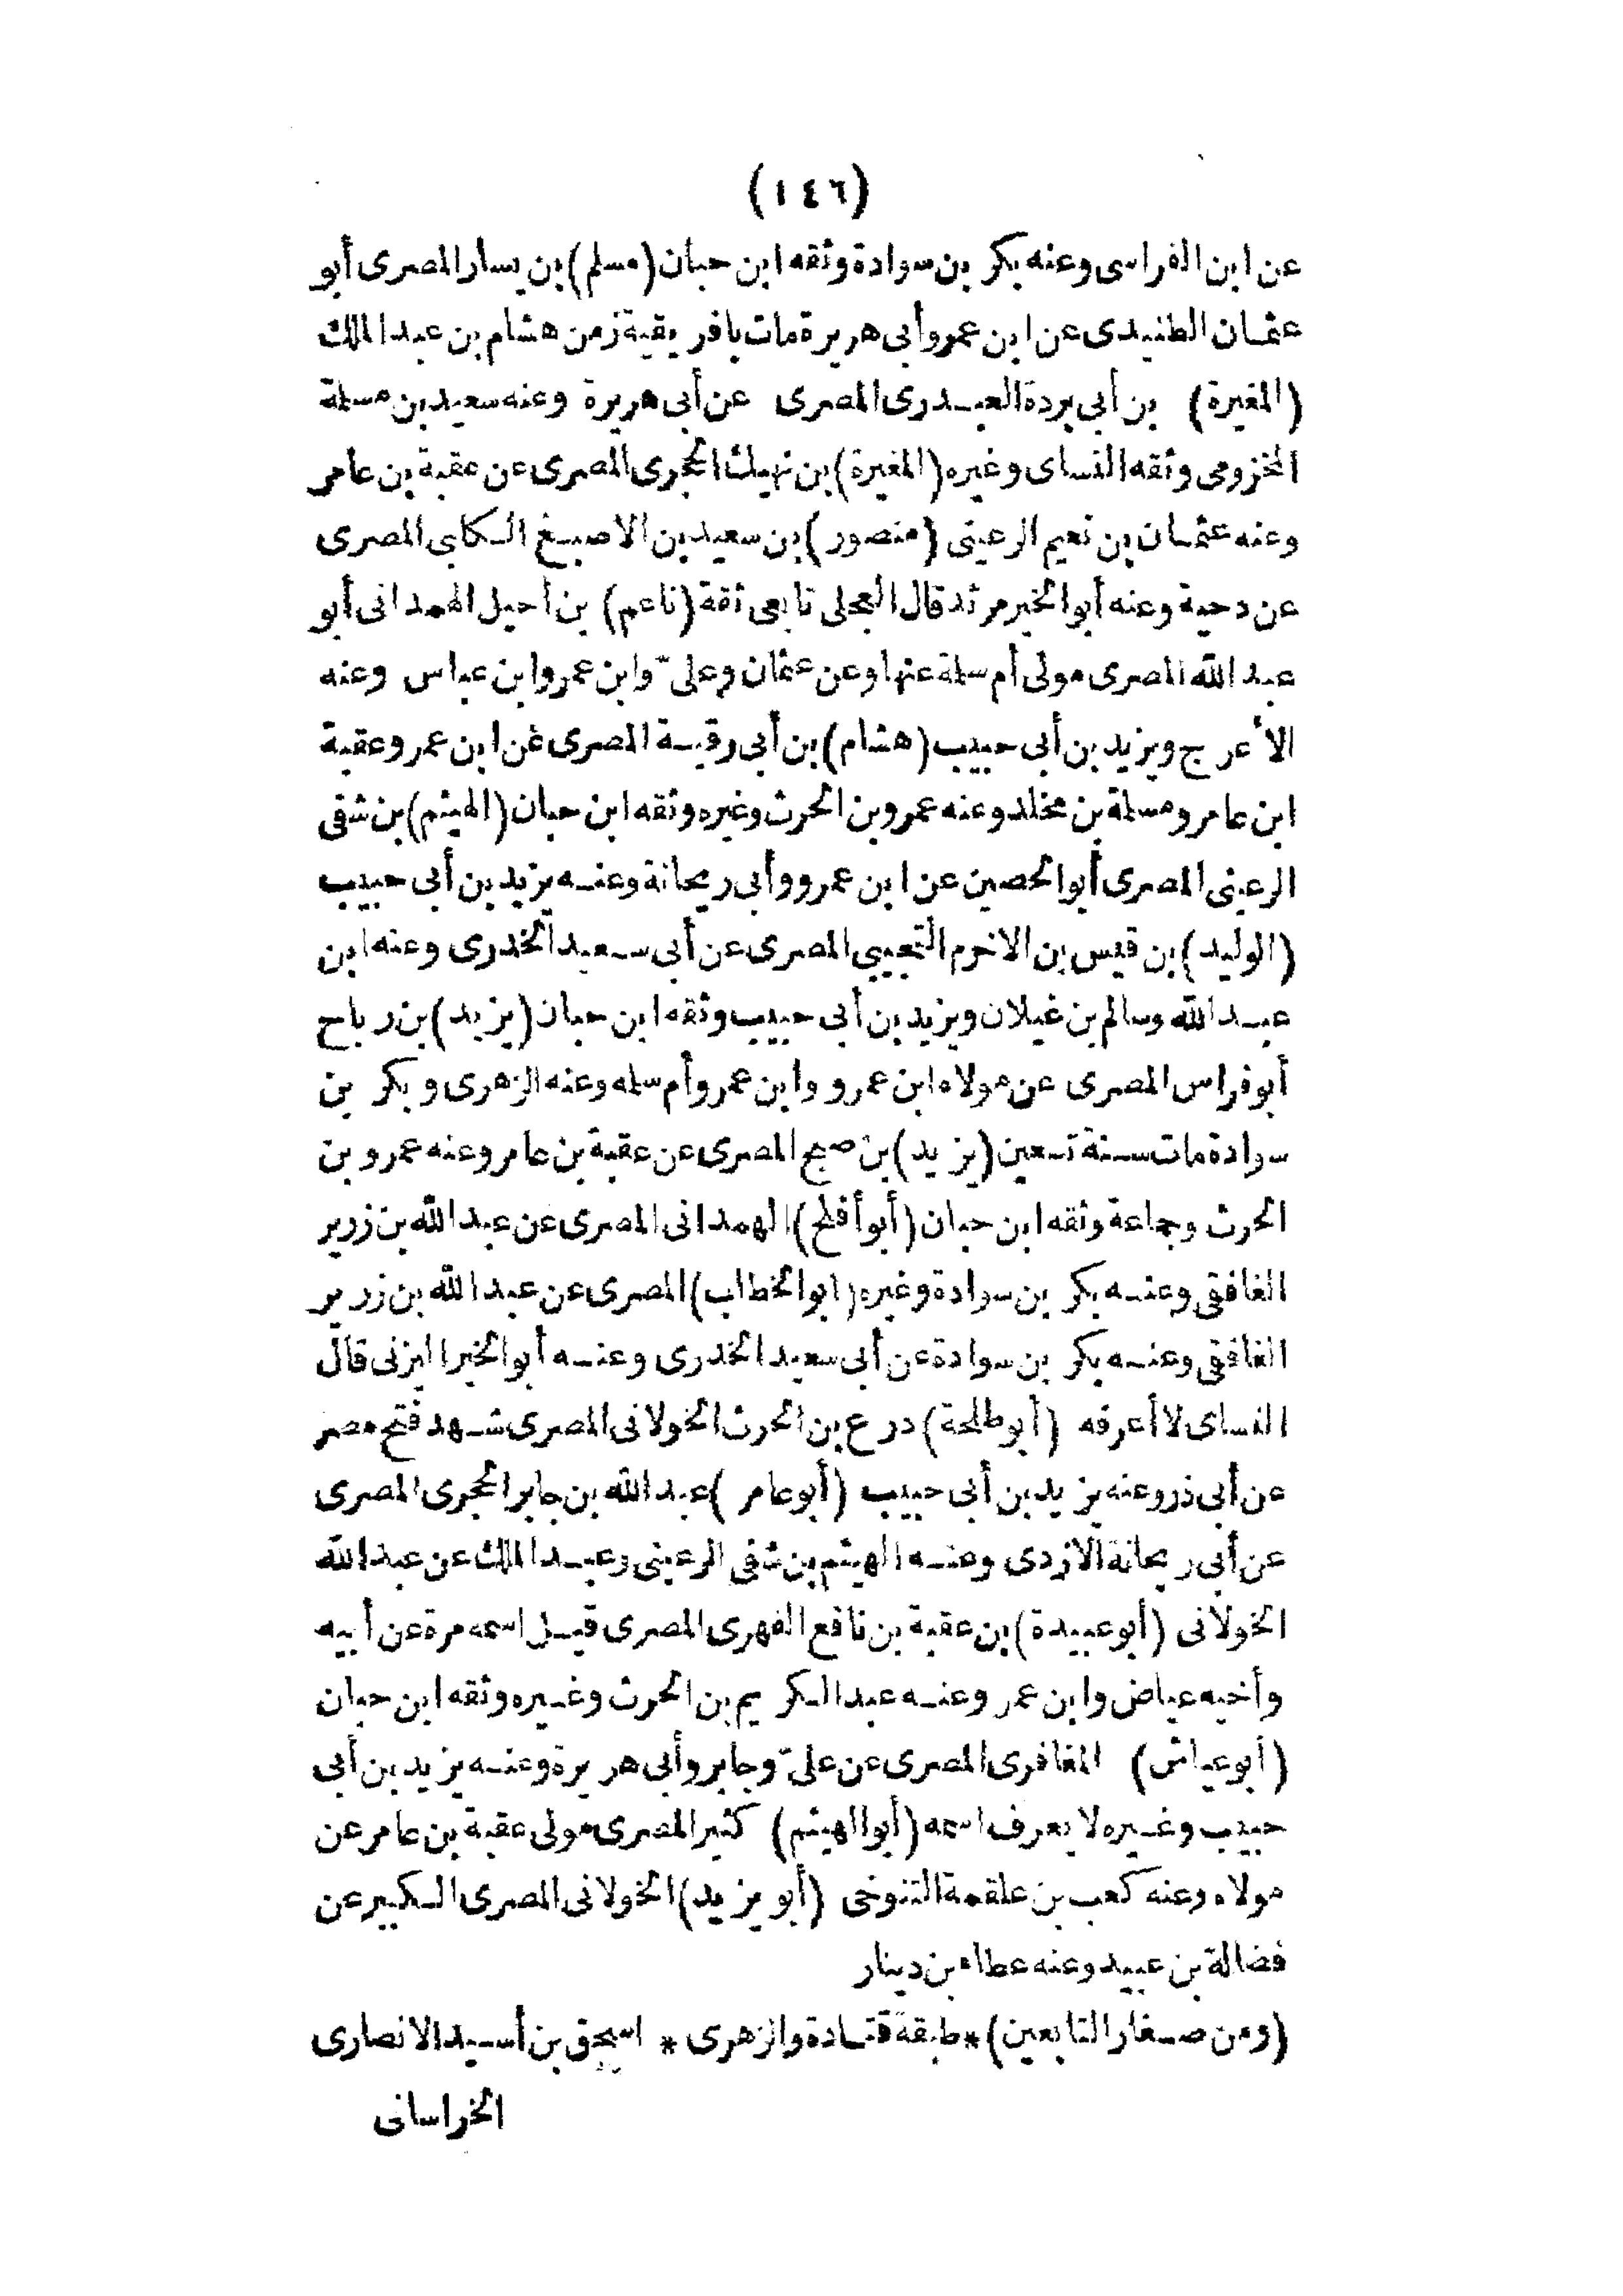 (١٤٦)
عن ابن الفراسى وعنه بكر بن سوادة وثقه ابن حبان (مسلم) بن يسار المصرى أبو
عثمان الطنبدى عن ابن عمر وأبى هريرة مات بافريقية زمن هشام بن عبد الملك
(المغيرة) بن أبى بردة العبدرى المصرى عن أبى هريرة وعنه سعيد بن مسلمة
المخزومى وثقه النساى وغيره (المغيرة) بن نهيك الحجرى المصرى عن عقبة بن عامر
وعنه عثمان بن نعيم الرعينى (منصور) بن سعيد بن الاصبغ الكلبى المصرى
عن دحية وعنه أبو الخير مرثد قال العجلى تابعى ثقة (ناعم) بن أجيل الهمدانى أبو
عبد الله المصرى مولى أم سلمة عنها وعن عثمان وعلىّ وابن عمر وابن عباس وعنه
الأعرج ويزيد بن أبى حبيب (هشام) بن أبى رقية المصرى عن ابن عمر وعقبة
ابن عامر ومسلمة بن مخلد وعنه عمرو بن الحرث وغيره وثقه ابن حبان (الهيثم) بن شفى
الرعينى المصرى أبو الحصين عن ابن عمرو وأبى ريحانة وعنه يزيد بن أبى حبيب
(الوليد) بن قيس بن الاخرم التجيبى المصرى عن أبى سعيد الخدرى وعنه ابن
عبد الله وسالم بن غيلان ويزيد بن أبى حبيب وثقه ابن حبان (يزيد) بن رباح
أبو فراس المصرى عن مولاه ابن عمرو وابن عمر وأم سلمه وعنه الزهرى وبكر بن
سوادة مات سنة تسعين (يزيد) بن صبح المصرى عن عقبة بن عامر وعنه عمرو بن
الحرث وجماعة وثقه ابن حبان (أبو أفلح) الهمدانى المصرى عن عبد الله بن زرير
الغافقى وعنه بكر بن سوادة وغيره (ابو الخطاب) المصرى عن عبد الله بن زرير
الغافقى وعنه بكر بن سوادة عن أبى سعيد الخدرى وعنه أبو الخير اليزنى قال
النساى لا أعرفه (أبو طلحة) درع بن الحرث الخولانى المصرى شهد فتح مصر
عن أبى ذر وعنه يزيد بن أبى حبيب (أبو عامر) عبد الله بن جابر الحجرى المصرى
عن أبى ريحانة الازدى وعنه الهيثم بن شفى الرعينى وعبد الملك عن عبد الله
الخولانى (أبو عبيدة) بن عقبة بن نافع الفهرى المصرى قيل اسمه مرة عن أبيه
وأخيه عياض وابن عمر وعنه عبد الكريم بن الحرث وغيره وثقه ابن حبان
(أبو عياش) المغافرى المصرى عن علىّ وجابر وأبى هريرة وعنه يزيد بن أبى
حبيب وغيره لا يعرف اسمه (أبو الهيثم) كثير المصرى مولى عقبة بن عامر عن
مولاه وعنه كعب بن علقمة التنوخى (أبو يزيد) الخولانى المصرى الكبير عن
فضالة بن عبيد وعنه عطاء بن دينار
(ومن صغار التابعين) * طبقة قتادة والزهرى * اسحق بن أسيد الانصارى
الخراسانى